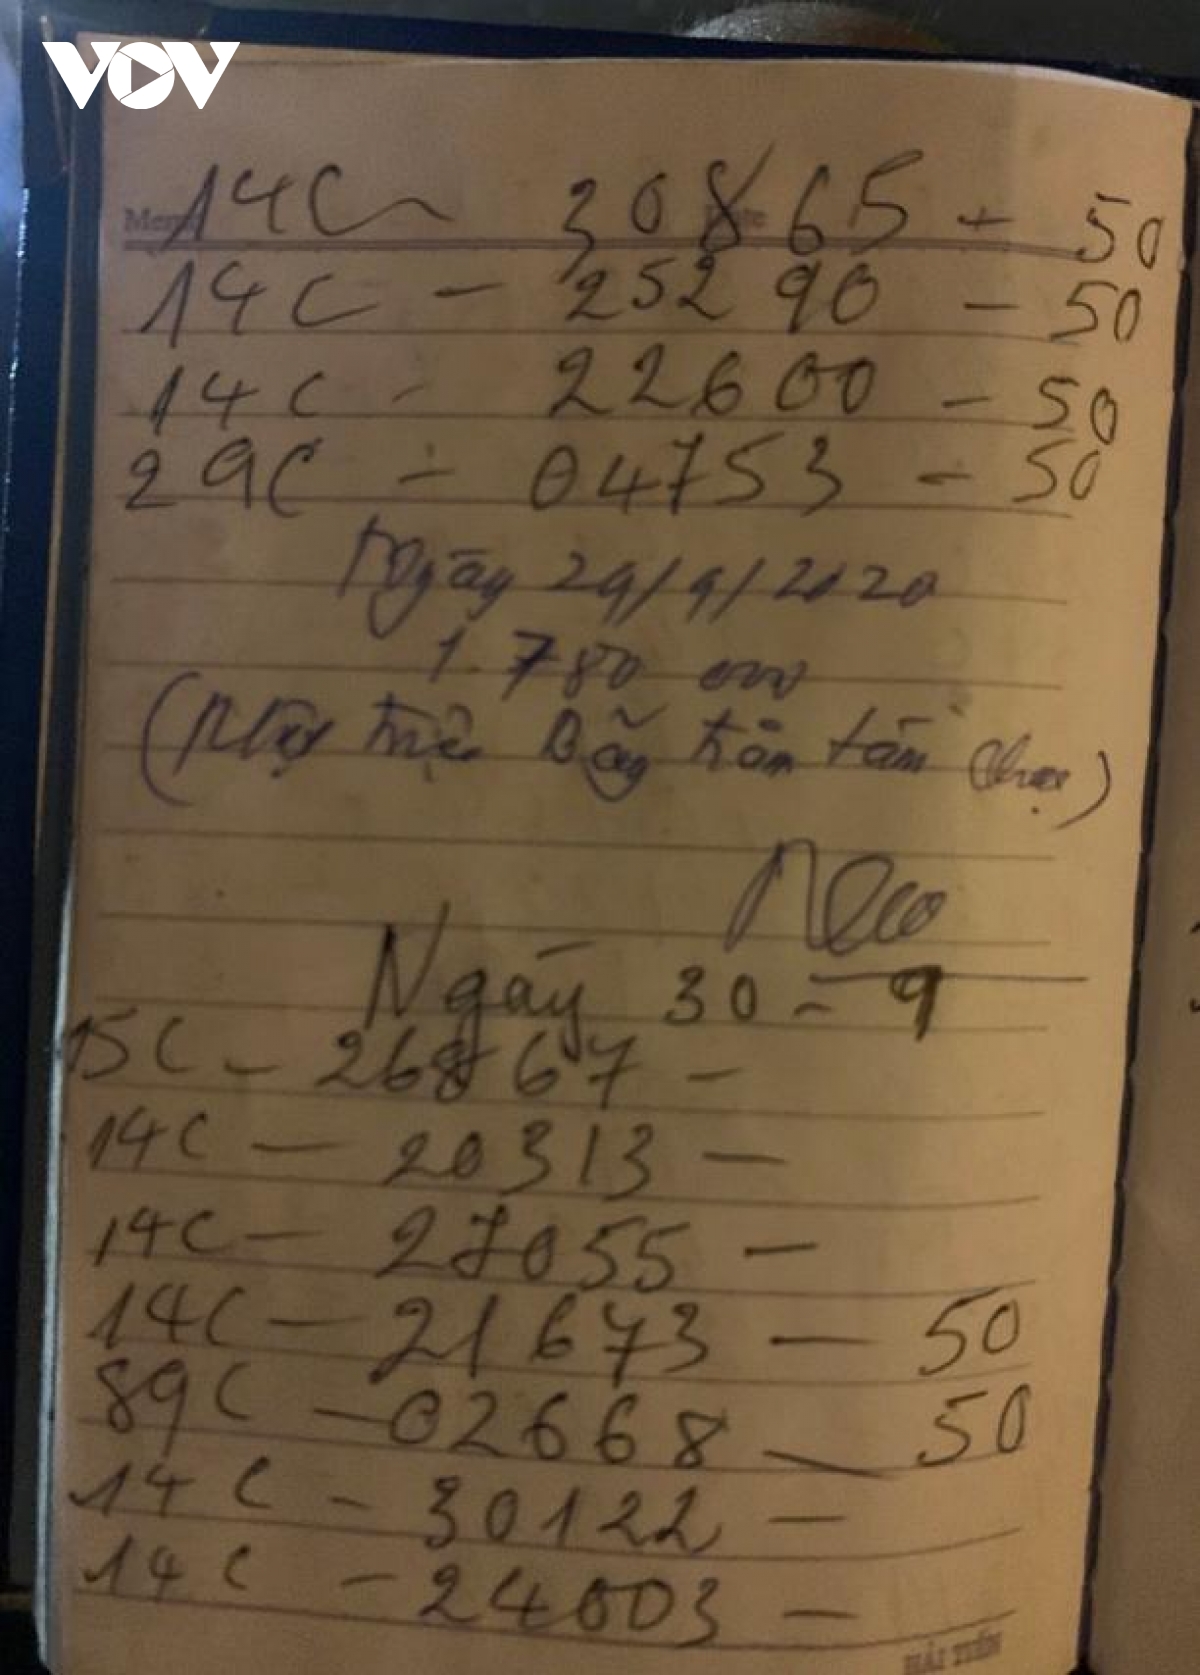 VOV
14C - 30865 - 50
14C - 25290 - 50
14C - 22600 - 50
29C - 04753 - 50
Ngày 29/9/2020
1.780 000
(Một triệu Bảy trăm tám chục)
Ngày 30 - 9
15C - 26867 -
14C - 20313 -
14C - 27055 -
14C - 21673 - 50
89C - 02668 - 50
14C - 30122 -
14C - 24003 -
HẢI TIẾN